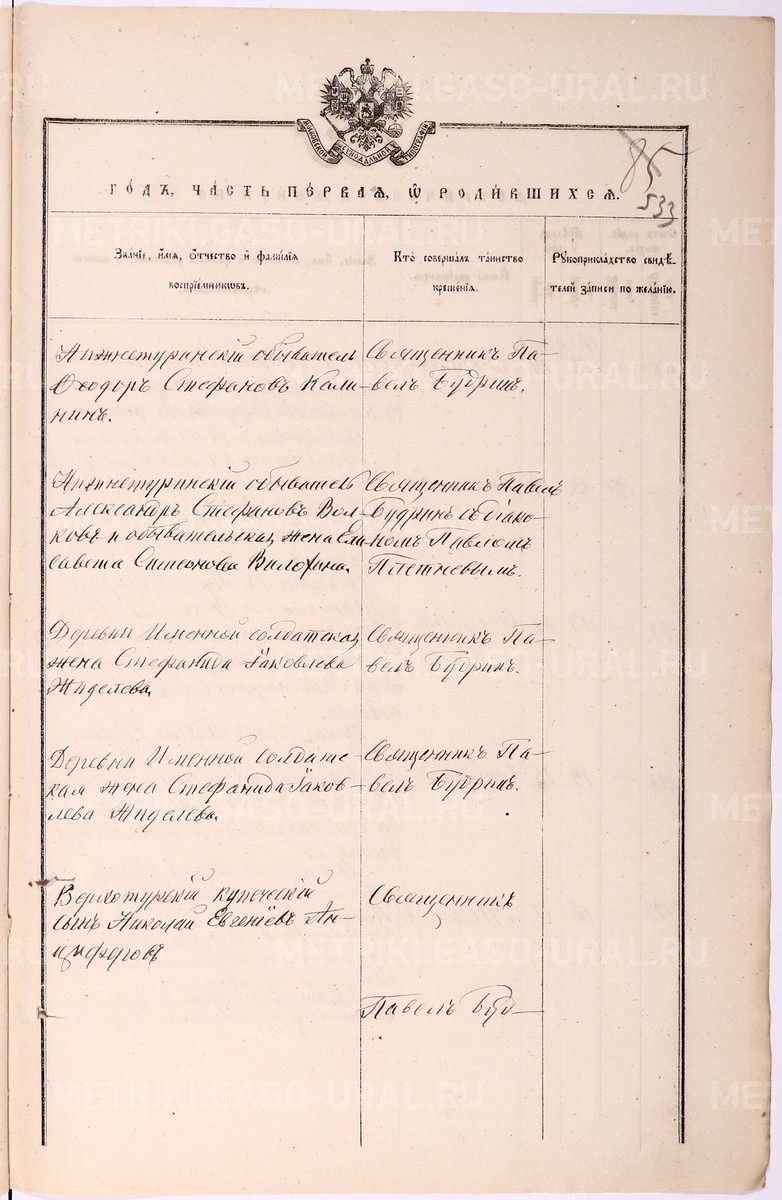 МОСКОВСКОЙ СѴНОДАЛЬНОЙ ТИПОГРАФІИ
85
533
ГО́ДЪ, ЧА́СТЬ ПЕ́РВАЯ, Ѡ҆ РОДИ́ВШИХСЯ.
Зва́нїе, и҆́мя, ѻ҆́тчество и҆ фами́лїя
воспрїе́мникѡвъ.
Кто̀ соверша́лъ та́инство
креще́нїя.
Рꙋкоприкла́дство свидѣ́-
телей за́писи по жела́нїю.
Нижнетуринскій обыватель
Ѳеодоръ Стефановъ Кали-
нинъ.
Священникъ Па-
велъ Будринъ.
Нижнетуринскій обыватель
Александръ Стефановъ Вол-
ковъ и обывательская жена Ели-
савета Симеонова Вилохина.
Священникъ Павелъ
Будринъ съ діако-
номъ Павломъ
Плетневымъ.
Деревни Именной солдатская
жена Стефанида Іаковлева
Жиделева.
Священникъ Па-
велъ Будринъ.
Деревни Именной солдатс-
кая жена Стефанида Іаков-
лева Жиделева.
Священникъ Па-
велъ Будринъ.
Верхотурскій купеческій
сынъ Николай Евгеніевъ Ан-
циферовъ
Священникъ
Павелъ Буд-
METRIKI.GASO-URAL.RU